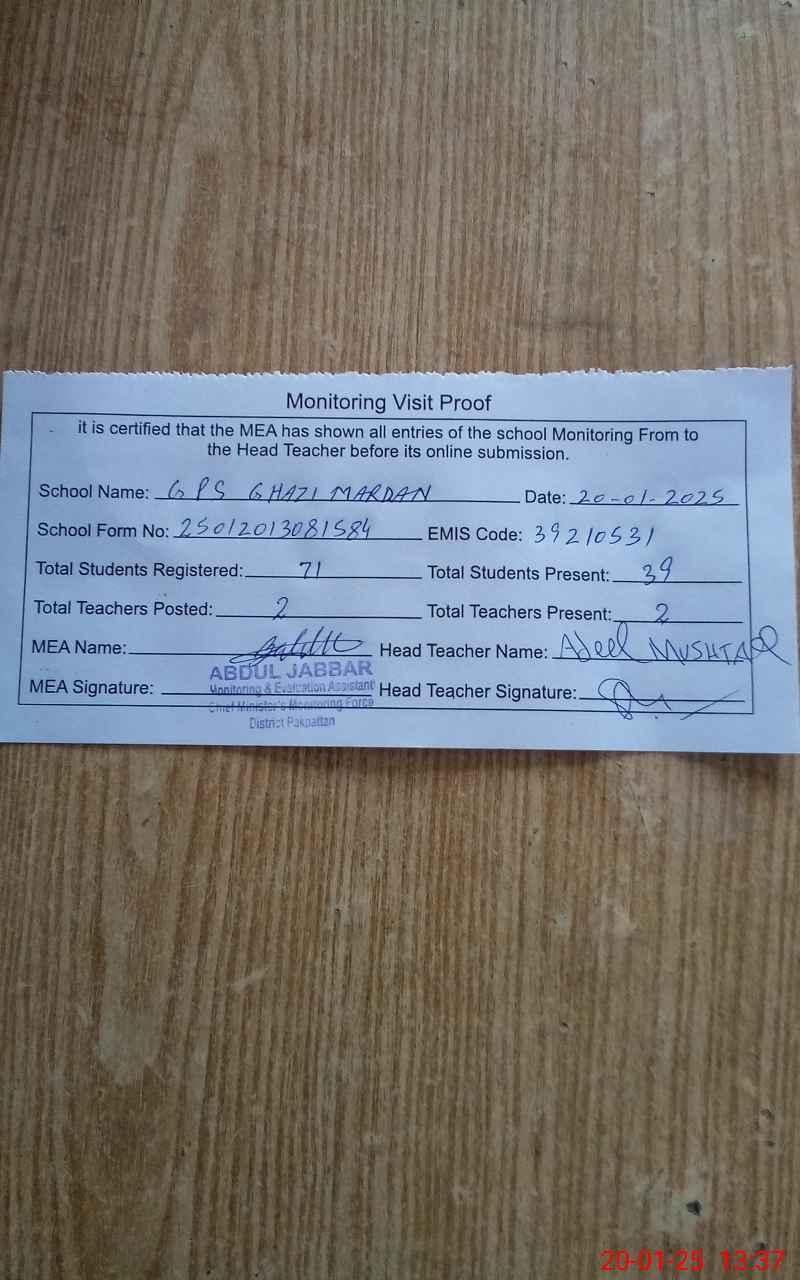 Monitoring Visit Proof
it is certified that the MEA has shown all entries of the school Monitoring From to
the Head Teacher before its online submission.
School Name: GPS GHAZI MARDAN Date: 20-01-2025
School Form No: 25012013081584 EMIS Code: 39210531
Total Students Registered: 71 Total Students Present: 39
Total Teachers Posted: 2 Total Teachers Present: 2
MEA Name: Head Teacher Name: Adeel MUSHTAQ
ABDUL JABBAR
MEA Signature: Monitoring & Evaluation Assistant Head Teacher Signature:
Chief Minister's Monitoring Force
District Pakpattan
20-01-25 13:37